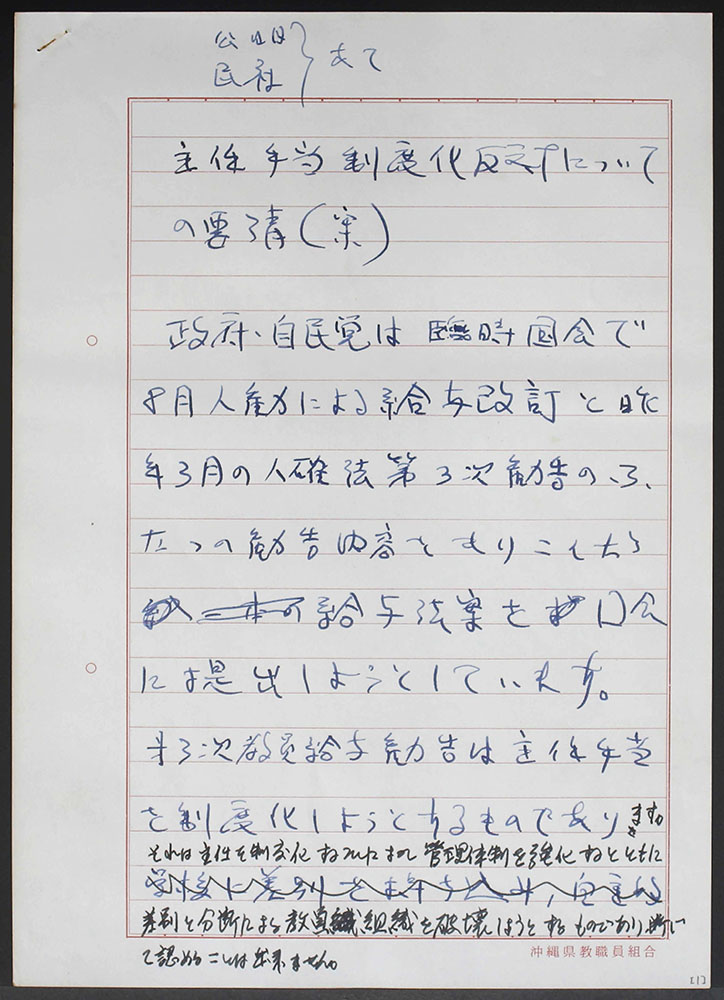 公明
民社 あて
主任手当制度化反対について
の要請(案)
政府・自民党は臨時国会で
8月人勧による給与改訂と昨
年3月の人確法第3次勧告のふ
たつの勧告内容をもりこんだ
一本の給与法案を国会
に提出しようとしています。
第3次教員給与勧告は主任手当
を制度化しようとするものであり
ますが
それは主任を制度化することにより管理体制を強化するとともに
学校に差別を持ち込み、自主的
差別と分断による教員組織を破壊しようとするものであり断じ
て認めることは出来ません。
沖縄県教職員組合
[1]